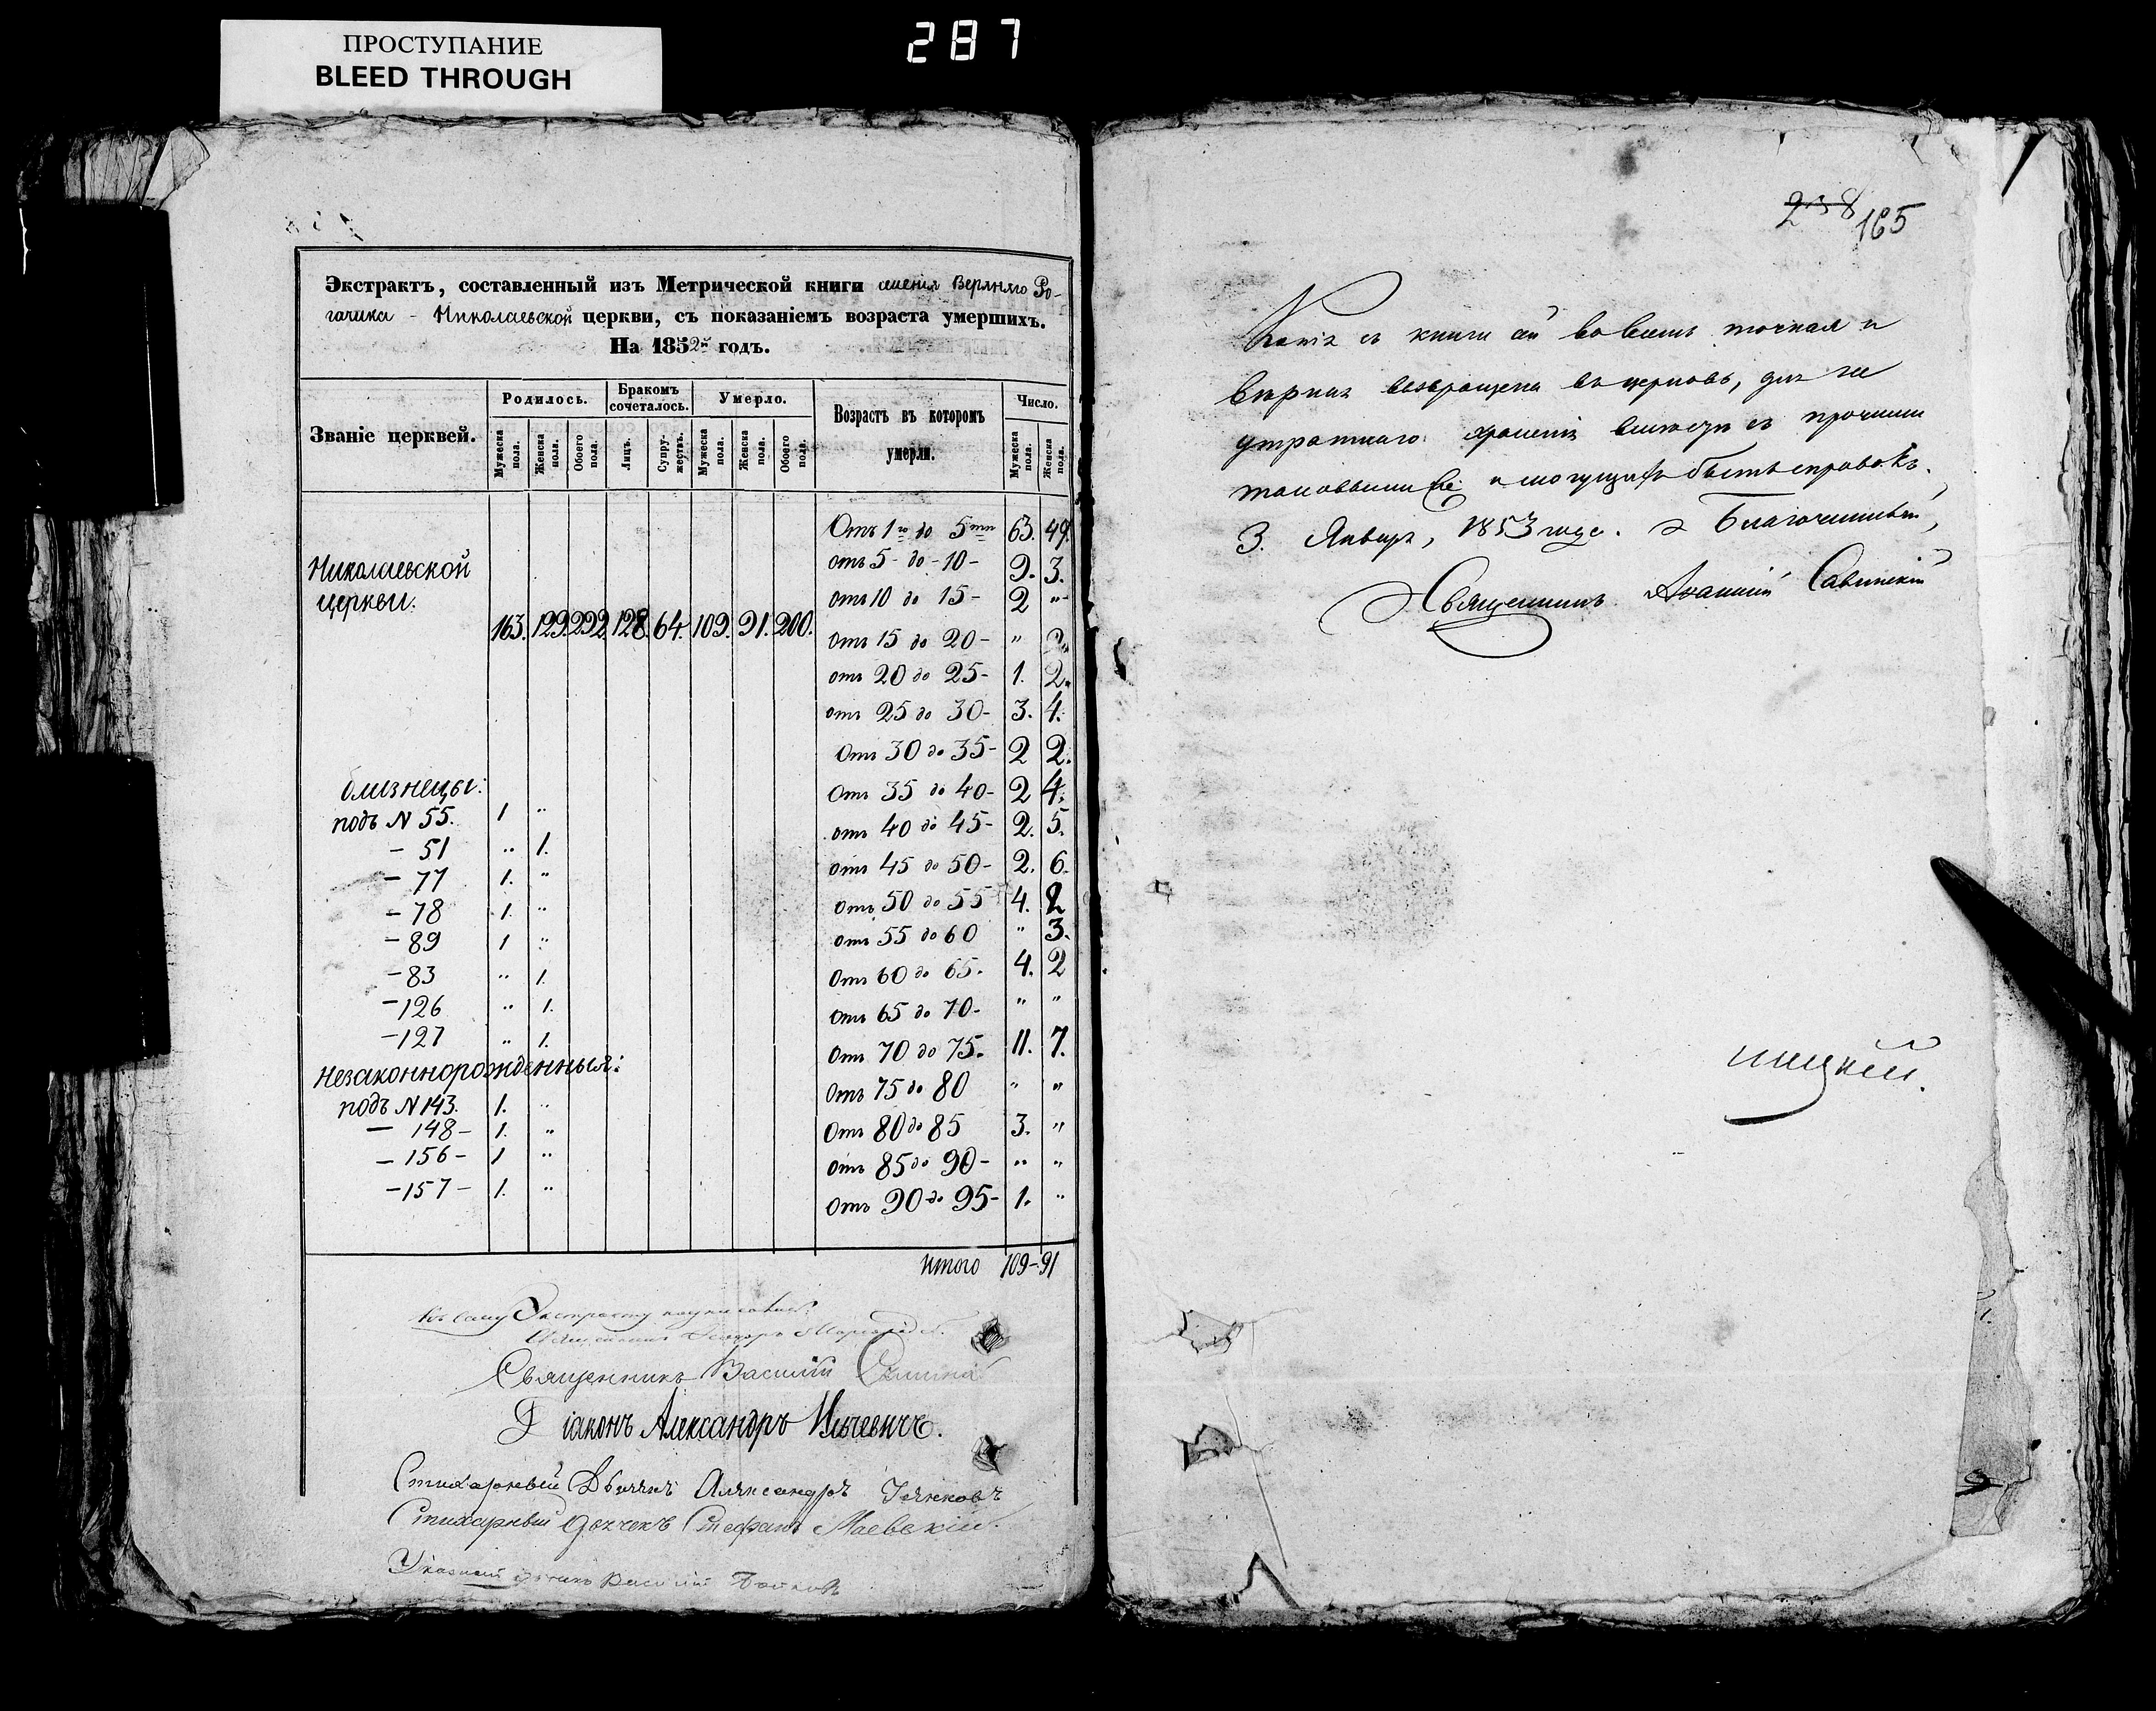 ПРОСТУПАНИЕ
BLEED THROUGH
287
Экстрактъ, составленный изъ Метрической книги селенія Верхняго Ро-
гачика - Николаевской церкви, съ показаніемъ возраста умершихъ.
На 1852й годъ.
Званіе церквей.
Родилось.
Бракомъ сочеталось.
Умерло.
Возрастъ въ которомъ умерли.
Число.
Мужеска пола.
Женска пола.
Обоего пола.
Лицъ.
Супру-жествъ.
Мужеска пола.
Женска пола.
Обоего пола.
Мужеска пола.
Женска пола.
Николаевской
церкви.
163. 129. 292 128. 64. 109. 91. 200.
Отъ 1го до 5ти 63. 49.
отъ 5 - до - 10 - 9. 3.
отъ 10 до 15 - 2 "
отъ 15 до 20 - " 2.
отъ 20 до 25 - 1. 2.
отъ 25 до 30 - 3. 4.
Отъ 30 до 35 - 2 2.
Отъ 35 до 40 - 2 4.
отъ 40 до 45 - 2. 5.
отъ 45 до 50 - 2. 6.
Отъ 50 до 55 4. 2
отъ 55 до 60 " 3.
Отъ 60 до 65. 4. 2
Отъ 65 до 70 - " "
Отъ 70 до 75. 11. 7.
Отъ 75 до 80 " "
Отъ 80 до 85 3. "
отъ 85 до 90 - " "
Отъ 90 до 95 - 1. "
близнецы:
подъ N 55. 1 "
- 51 " 1.
- 77 1. "
- 78 1. "
- 89 1 "
- 83 " 1.
- 126 " 1.
- 127 " 1.
Незаконнорожденныя:
подъ N 143. 1. "
- 148 - 1. "
- 156 - 1 "
- 157 - 1. "
Итого 109 - 91
Къ сему Экстракту
Священникъ
Священникъ Василій
Діаконъ Александръ Ильчевичъ.
Стихарный Дьячекъ Александръ
Стихарный дьячекъ Стефанъ Маевскій.
Указный Василій
238
165
Копія съ книги сей во всемъ точная и
вѣрная возвращена въ церковь, для не
утратнаго храненія вмѣстѣ съ прочими
таковыми и могущихъ быть справокъ.
3. Января, 1853 года. Благочинный,
Священникъ Савинскій
ицкій.